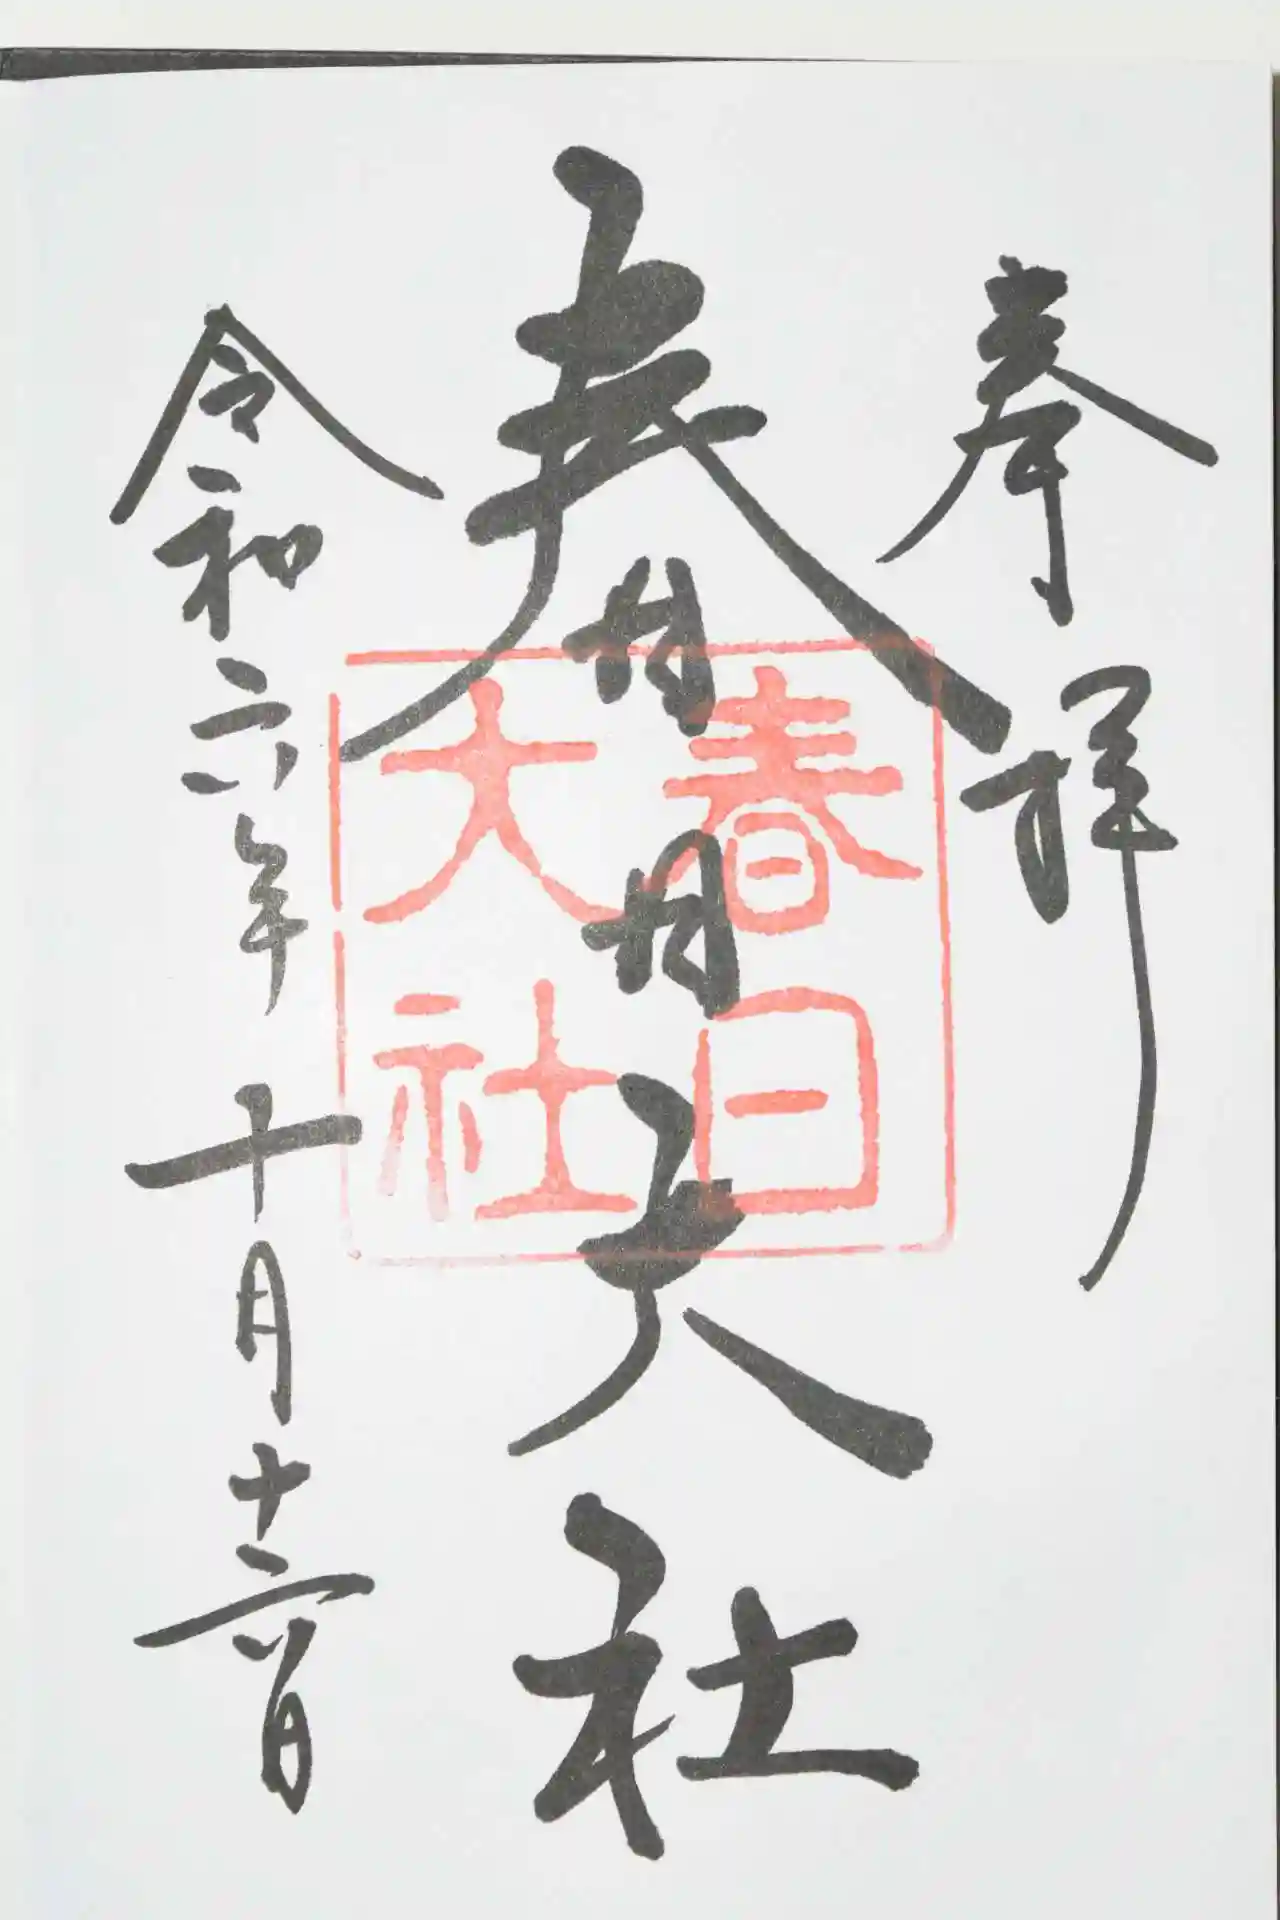 奉拝
春日大社
春日
大社
令和六年十月十六日